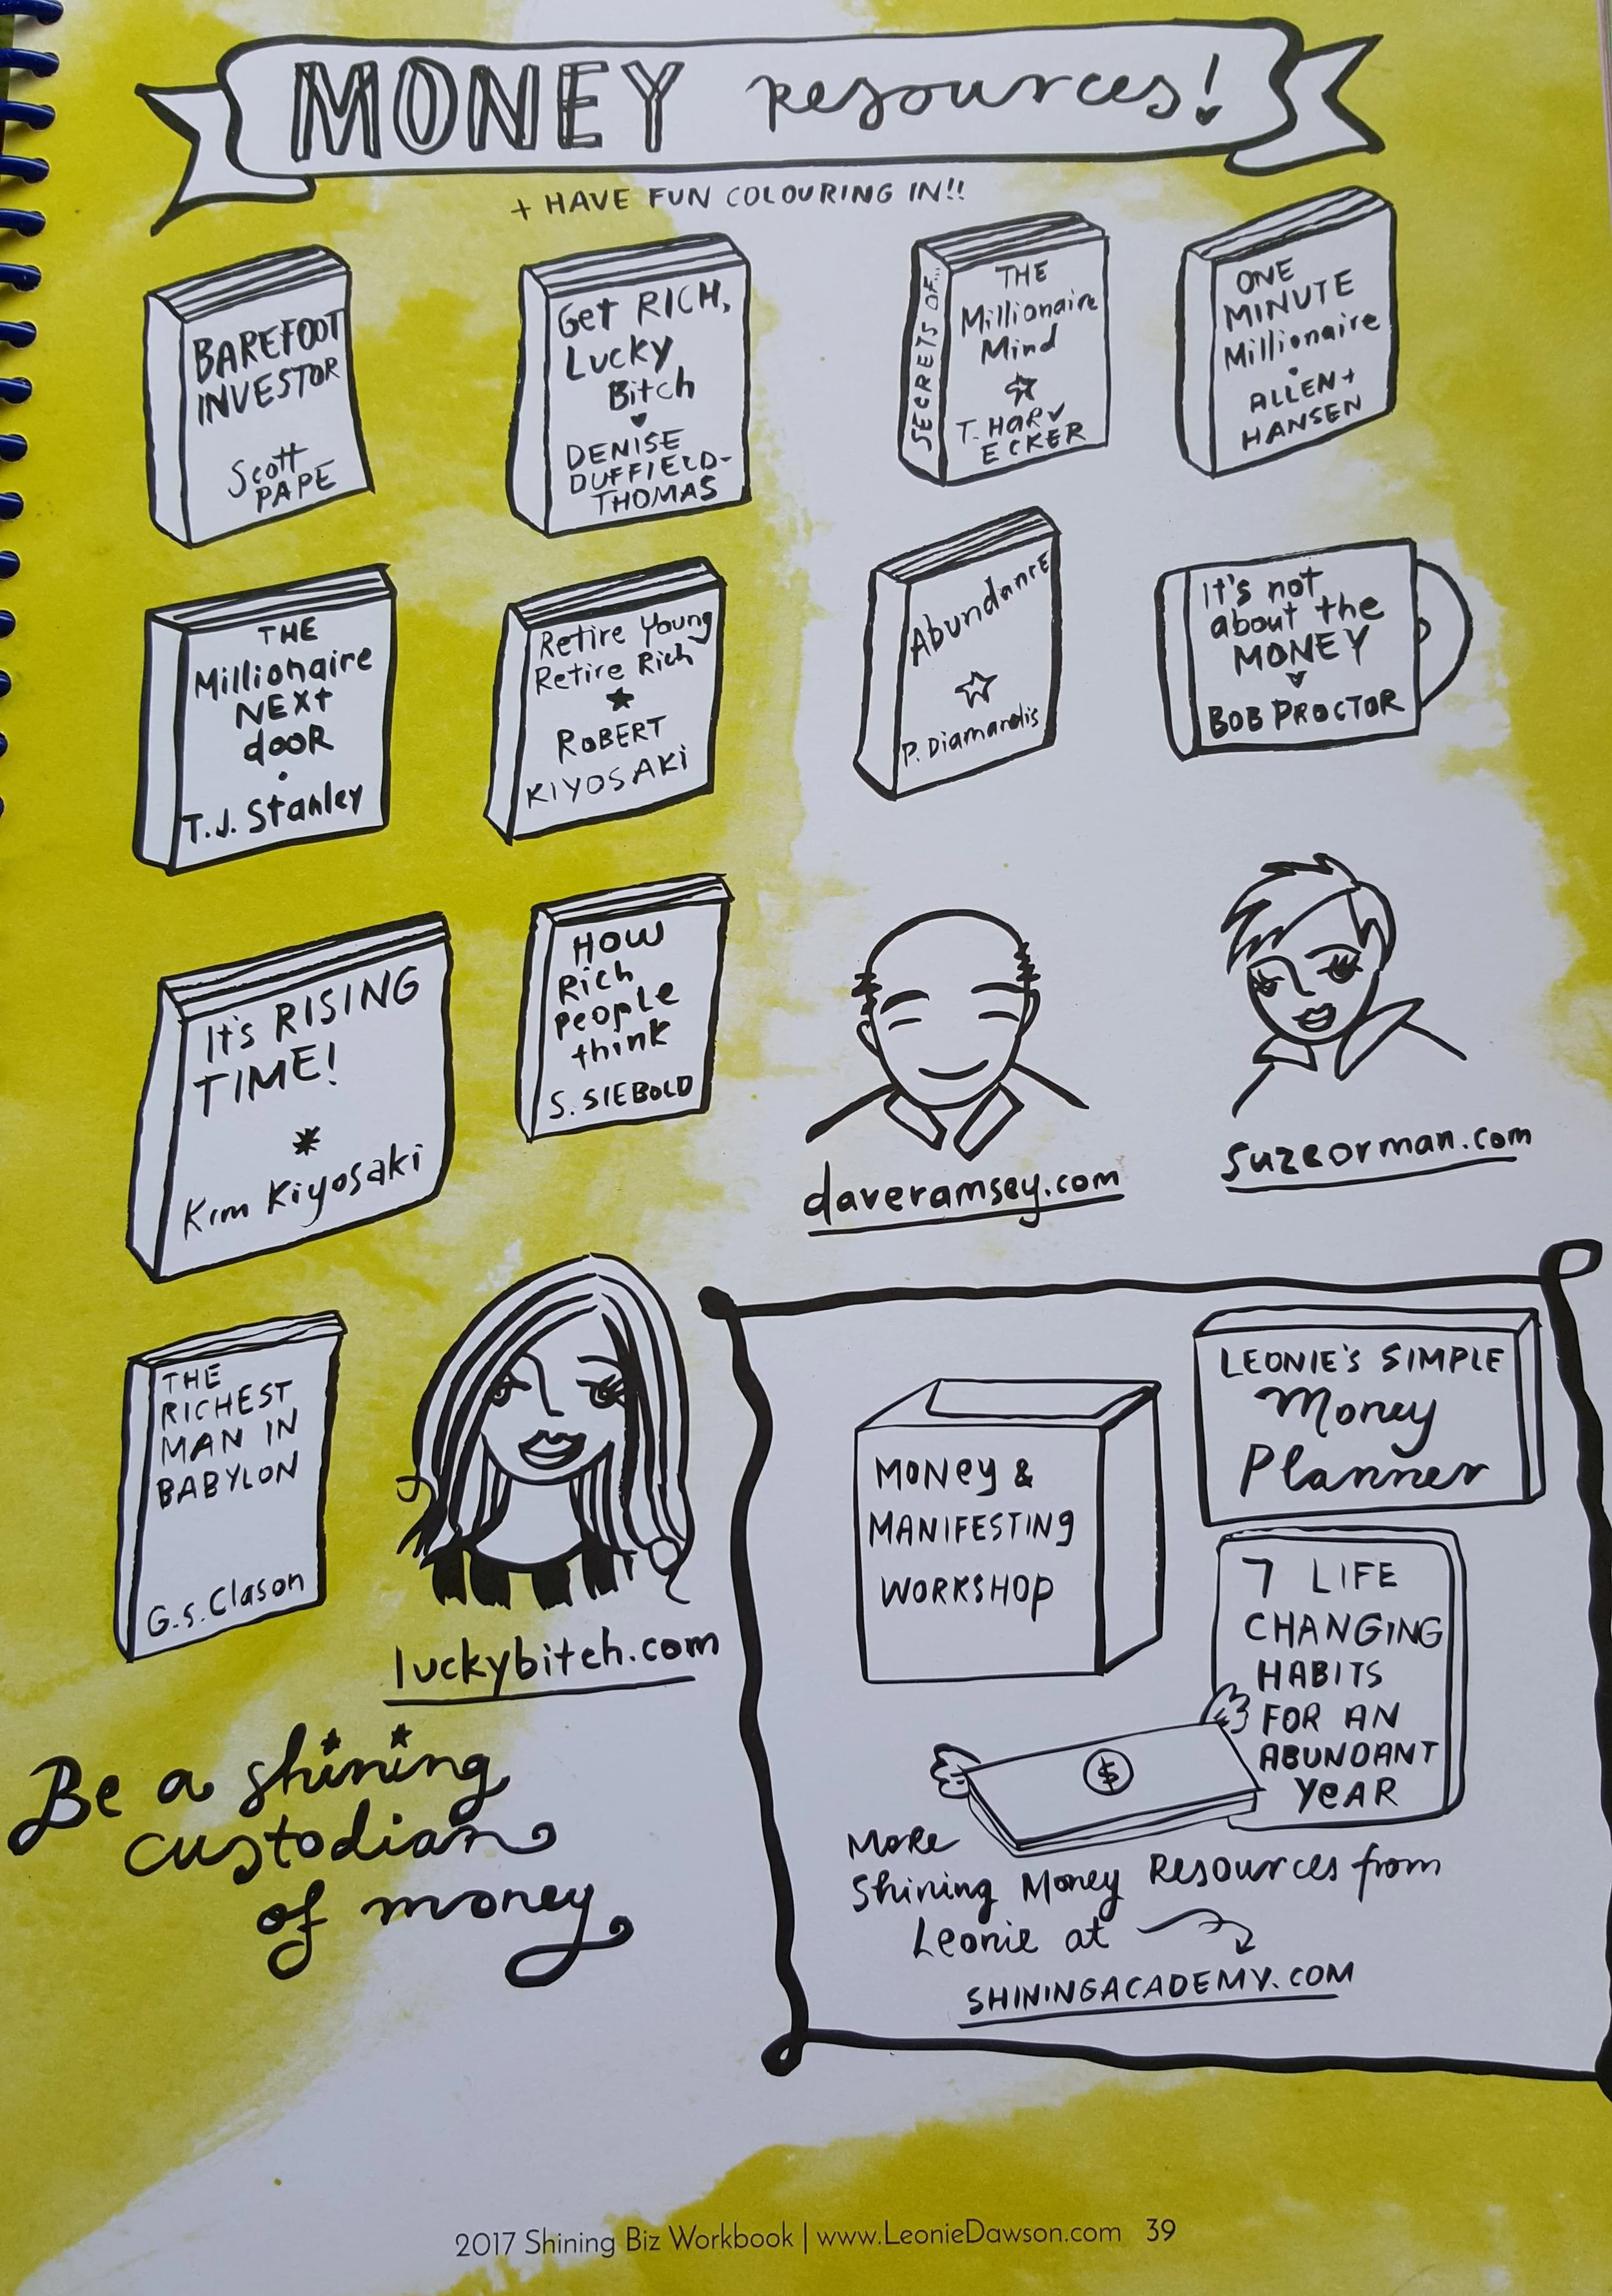 MONEY resources!
+ HAVE FUN COLOURING IN!!
BAREFOOT
INVESTOR
Scott
PAPE
Get RICH,
Lucky
Bitch
DENISE
DUFFIELD-
THOMAS
SECRETS OF...
THE
Millionaire
Mind
T. HARV
ECKER
ONE
MINUTE
Millionaire
ALLEN +
HANSEN
THE
Millionaire
NEXT
dooR
T.J. Stanley
Retire Young
Retire Rich
ROBERT
KIYOSAKI
Abundance
P. Diamandis
It's not
about the
MONEY
BOB PROCTOR
It's RISING
TIME!
Kim Kiyosaki
HOW
Rich
People
think
S. SIEBOLD
daveramsey.com
suzeorman.com
THE
RICHEST
MAN IN
BABYLON
G.S. Clason
luckybitch.com
Be a shining
custodian
of money
MONEY &
MANIFESTING
WORKSHOP
LEONIE'S SIMPLE
Money
Planner
7 LIFE
CHANGING
HABITS
FOR AN
ABUNDANT
YEAR
$
More
Shining Money Resources from
Leonie at
SHININGACADEMY.COM
2017 Shining Biz Workbook | www.LeonieDawson.com 39